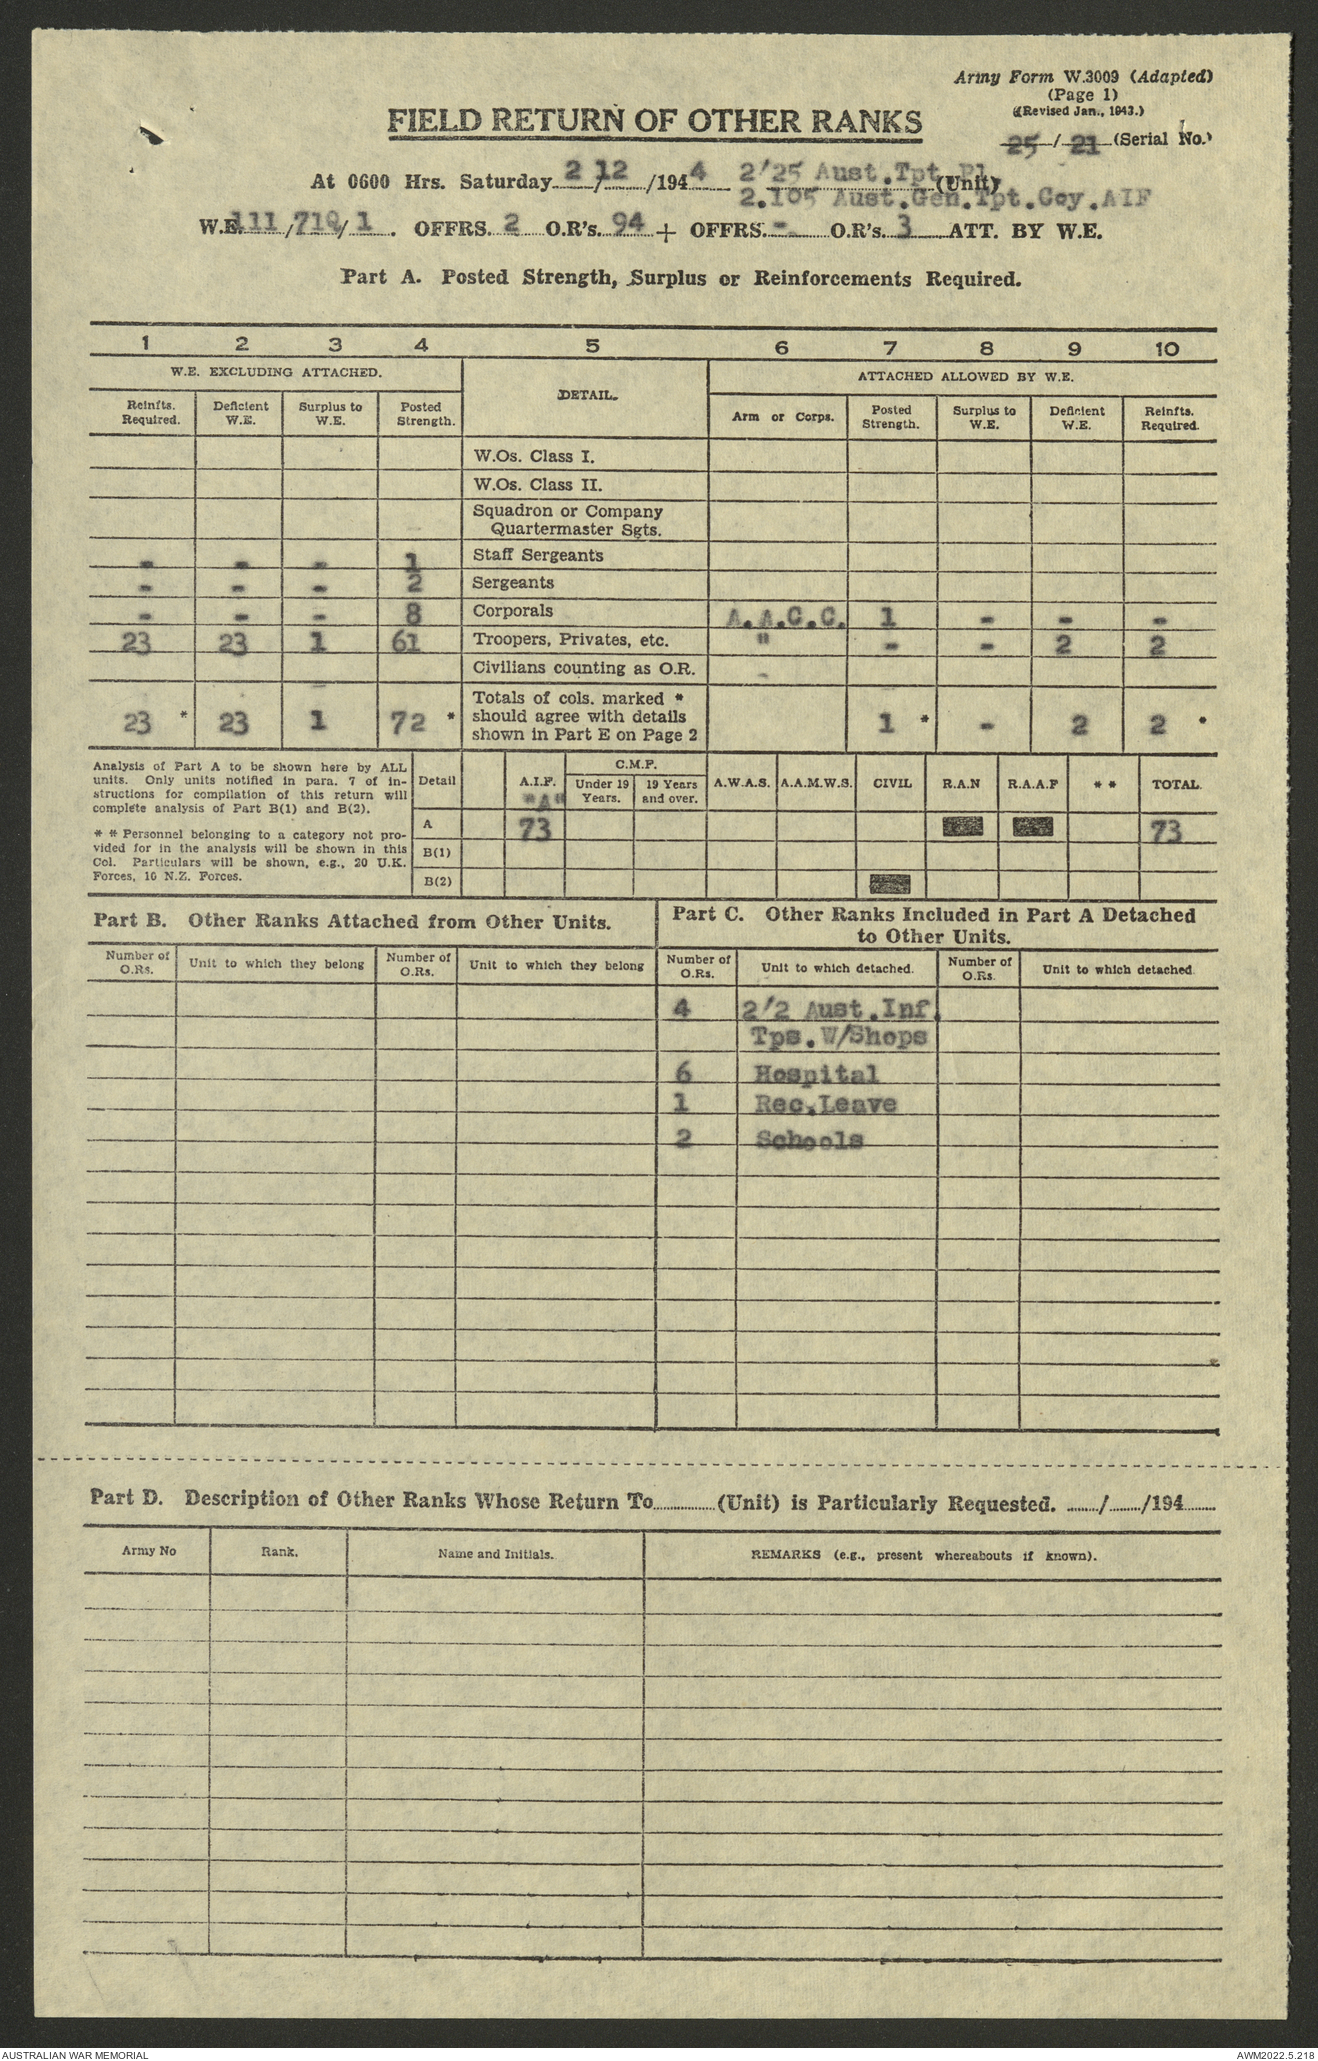 Army Form W.3009 (Adapted)
(Page 1)
(Revised Jan., 1943.)
FIELD RETURN OF OTHER RANKS
25 / 21 (Serial No.)
At 0600 Hrs. Saturday 2/12/1944 2/25 Aust.Tpt Pl. (Unit)
2.105 Aust.Gen.Tpt.Coy.AIF
W.E. 111/719/1. OFFRS. 2 O.R's. 94 + OFFRS. - O.R's. 3 ATT. BY W.E.
Part A. Posted Strength, Surplus or Reinforcements Required.
1 2 3 4 5 6 7 8 9 10
W.E. EXCLUDING ATTACHED. DETAIL. ATTACHED ALLOWED BY W.E.
Reinfts. Required. Deficient W.E. Surplus to W.E. Posted Strength. Arm or Corps. Posted Strength. Surplus to W.E. Deficient W.E. Reinfts. Required.
W.Os. Class I.
W.Os. Class II.
Squadron or Company
Quartermaster Sgts.
- - - 1 Staff Sergeants
- - - 2 Sergeants
- - - 8 Corporals A.A.C.C. 1 - - -
23 23 1 61 Troopers, Privates, etc. " - - 2 2
Civilians counting as O.R. -
Totals of cols. marked *
23 * 23 1 72 * should agree with details 1 * - 2 2 *
shown in Part E on Page 2
Analysis of Part A to be shown here by ALL
units. Only units notified in para. 7 of in-
structions for compilation of this return will
complete analysis of Part B(1) and B(2).
* * Personnel belonging to a category not pro-
vided for in the analysis will be shown in this
Col. Particulars will be shown, e.g., 20 U.K.
Forces, 10 N.Z. Forces.
Detail A.I.F. "A" C.M.F. Under 19 Years. 19 Years and over. A.W.A.S. A.A.M.W.S. CIVIL R.A.N R.A.A.F * * TOTAL.
A 73 73
B(1)
B(2)
Part B. Other Ranks Attached from Other Units.
Number of O.Rs. Unit to which they belong Number of O.Rs. Unit to which they belong
Part C. Other Ranks Included in Part A Detached
to Other Units.
Number of O.Rs. Unit to which detached. Number of O.Rs. Unit to which detached
4 2/2 Aust.Inf.
Tps.W/Shops
6 Hospital
1 Rec.Leave
2 Schools
Part D. Description of Other Ranks Whose Return To (Unit) is Particularly Requested. / /194
Army No Rank. Name and Initials. REMARKS (e.g., present whereabouts if known).
AUSTRALIAN WAR MEMORIAL AWM2022.5.218